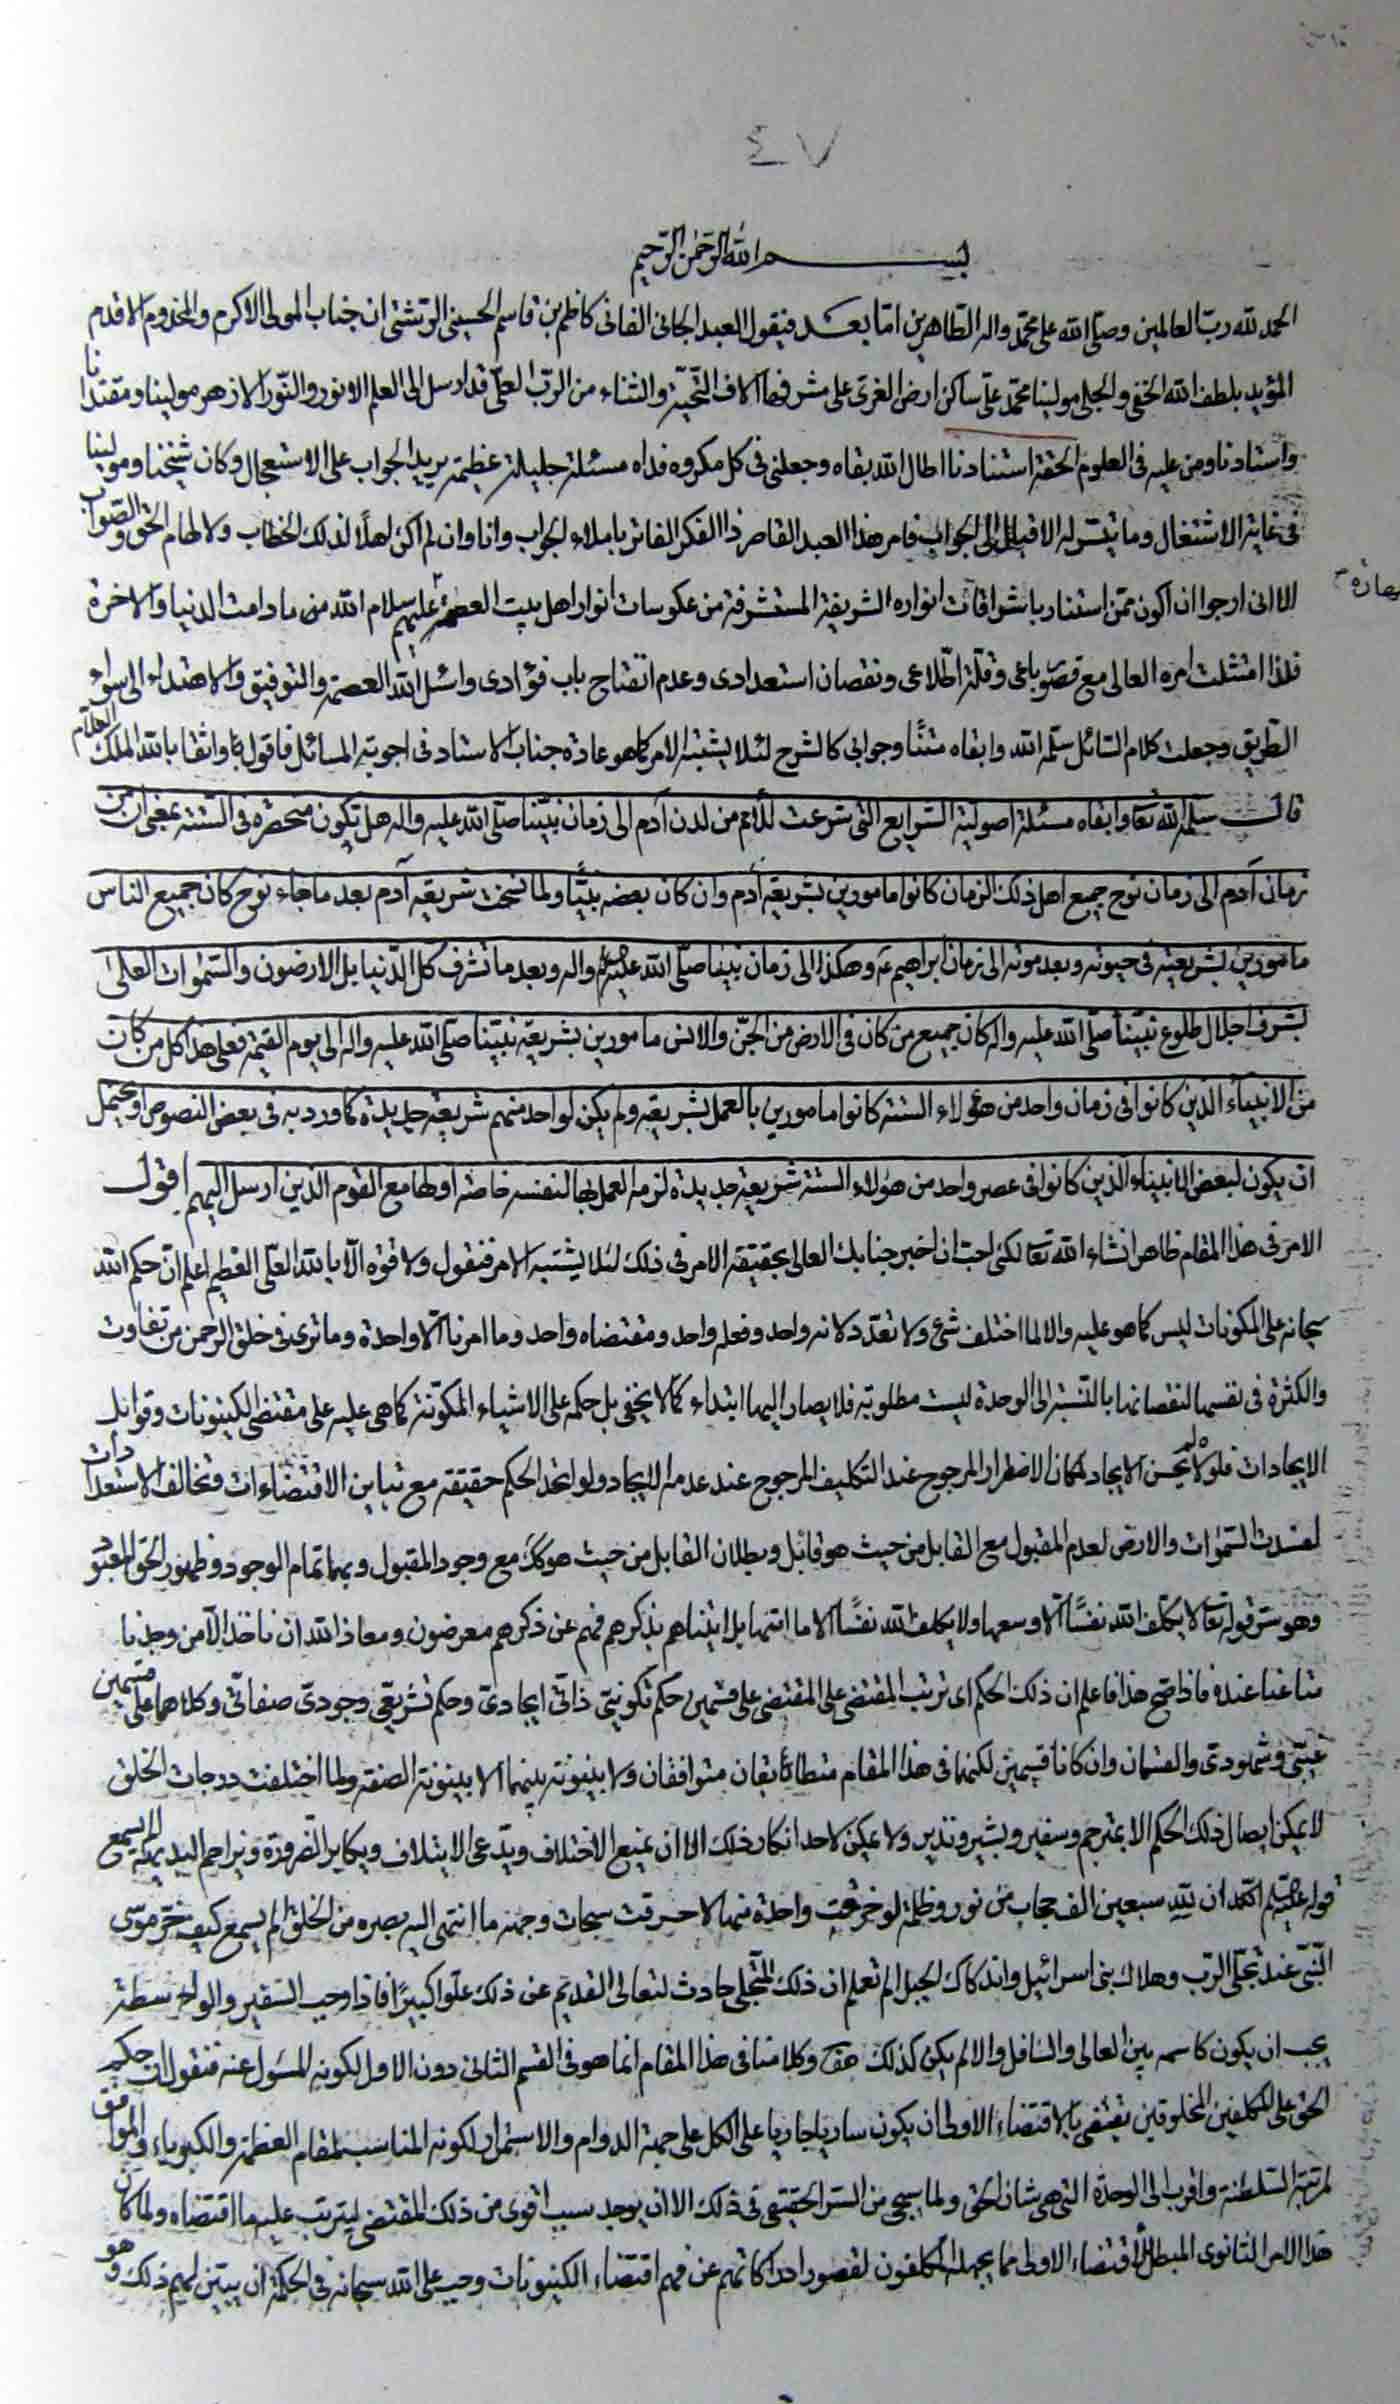 ٤٧
بسم الله الرحمن الرحيم
الحمد لله رب العالمين وصلى الله على محمد واله الطاهرين اما بعد فيقول العبد الجانى الفانى كاظم بن قاسم الحسينى الرتشتى ان جناب المولى الاكرم والمخدوم الاقدم
المؤيد بلطف الله الخفى والجلى مولينا محمد على ساكن ارض الغرى على مشرفها آلاف التحية والثناء من الرب العلى قد ارسل الى العلم الانور والنور الازهر مولينا ومقتدانا
واستادنا ومن عليه فى العلوم الحقة استنادنا اطال الله بقاه وجعلنى فى كل مكروه فداه مسئلة جليلة عظيمة يريد الجواب على الاستعجال وكان شيخنا ومولينا
فى غاية الاشتغال وما تيسر له الاقبال الى الجواب فامر هذا العبد القاصر ذا الفكر الفاتر باملاء الجواب وانا وان لم اكن اهلا لذلك الخطاب ولا لهام الحق والصواب
الا انى ارجوا ان اكون ممن استنار باشراقات انواره الشريفة المستشرقة من عكوسات انوار اهل بيت العصمة عليهم سلام الله من ما دامت الدنيا والاخرة
فلذا امتثلت امره العالى مع قصور باعى وقلة اطلاعى ونقصان استعدادى وعدم انفتاح باب فؤادى واسئل الله العصمة والتوفيق والاهتداء الى سواء
الطريق وجعلت كلام السائل سلمه الله وابقاه متنا وجوابى كالشرح لئلا يشتبه الامر كما هو عادة جناب الاستاد فى اجوبة المسائل فاقول واثقا بالله الملك العلام
قال سلمه الله تعا وابقاه مسئلة اصولية الشرايع التى شرعت للامم من لدن آدم الى زمان نبينا صلى الله عليه واله هل تكون منحصرة فى الستة بمعنى ان من
زمان آدم الى زمان نوح جميع اهل ذلك الزمان كانوا مامورين بشريعة آدم وان كان بعضه نبيا ولما نسخت شريعة آدم بعد ما جاء نوح كان جميع الناس
مامورين بشريعته فى حيوته وبعد موته الى زمان ابراهيم ع وهكذا الى زمان نبينا صلى الله عليه واله وبعد ما تشرف كل الدنيا بل الارضون والسموات العلى
بشرف اجلال طلوع نبينا صلى الله عليه واله كان جميع من كان فى الارض من الجن والانس مامورين بشريعة نبينا صلى الله عليه واله الى يوم القيمة فعلى هذا كل من كان
من الانبياء الذين كانوا فى زمان واحد من هؤلاء الستة كانوا مامورين بالعمل بشريعته ولم يكن لواحد منهم شريعة جديدة كما ورد به فى بعض النصوص او يحتمل
ان يكون لبعض الانبياء الذين كانوا فى عصر واحد من هؤلاء الستة شريعة جديدة لزمه العمل بها لنفسه خاصة او لها مع القوم الذين ارسل اليهم اقول
الامر فى هذا المقام ظاهر انشاء الله تعا لكنى احب ان اخبر جنابك العالى بحقيقة الامر فى ذلك لئلا يشتبه الامر فنقول ولا قوة الا بالله العلى العظيم اعلم ان حكم الله
سبحانه على المكونات ليس كما هو عليه والا لما اختلف شئ ولا تعدد لانه واحد وفعله واحد ومقتضاه واحد وما امرنا الا واحدة وما ترى فى خلق الرحمن من تفاوت
والكثرة فى نفسها لنقصانها بالنسبة الى الوحدة ليست مطلوبة فلا يصار اليها ابتداء كما لا يخفى بل حكمه على الاشياء المكونة كما هى عليه على مقتضى الكينونات وقوابل
الايجادات فلولاه لم يحسن الايجاد لمكان الاضطرار المرجوح عند التكليف المرجوح عند عدمه الايجاد ولو اتحد الحكم حقيقة مع تباين الاقتضاءات وتخالف الاستعدادات
لفسدت السموات والارض لعدم المقبول مع القابل من حيث هو قابل وبطلان القابل من حيث هو كك مع وجود المقبول وبهما تمام الوجود وظهور الحق المعبود
وهو سر قوله تعا لا يكلف الله نفسا الا وسعها ولا يكلف الله نفسا الا ما اتيها بل اتيناهم بذكرهم فهم عن ذكرهم معرضون ومعاذ الله ان ناخذ الا من وجدنا
متاعنا عنده فاذا اتضح هذا فاعلم ان ذلك الحكم اى ترتب المقتضى على المقتضى على قسمين حكم تكوينى ذاتى ايجادى وحكم تشريعى وجودى صفاتى وكلاهما على قسمين
غيبى وشهودى والقسمان وان كانا قسيمين لكنهما فى هذا المقام متطابقان متوافقان ولا بينونة بينهما الا بينونة الصفة ولما اختلفت درجات الخلق
لا يمكن ايصال ذلك الحكم الا بمترجم وسفير وبشير ونذير ولا يمكن لاحد انكار ذلك الا ان يمنع الاختلاف ويدعى الايتلاف ويكابر الضرورة ويزاحم البديهة الم يسمع
قوله ان لله سبعين الف حجاب من نور وظلمة لو خرقت واحدة منها لاحرقت سبحات وجهه ما انتهى اليه بصره من الخلق الم يسمع كيف خر موسى
النبى عند تجلى الرب وهلاك بنى اسرائيل واندكاك الجبل الم تعلم ان ذلك المتجلى حادث لتعالى القديم عن ذلك علوا كبيرا فاذا وجب السفير والواسطة
يجب ان يكون كاسمه بين العالى والسافل والا لم يكن كذلك هف وكلامنا فى هذا المقام انما هو فى القسم الثانى دون الاول لكونه المسئول عنه فنقول ان حكم
الحق على المكلفين المخلوقين يقتضى بالاقتضاء الاولى ان يكون ساريا جاريا على الكل على جهة الدوام والاستمرار لكونه المناسب لمقام العظمة والكبرياء والموافق
لمرتبة السلطنة واقرب الى الوحدة التى هى شان الحق ولما سيجئ من السر الحقيقى فى ذلك الا ان يوجد سبب اقوى من ذلك المقتضى ليترتب عليه ما اقتضاه ولما كان
هذا الامر الثانوى المبطل لاقتضاء الاولى مما يجهله المكلفون لقصور ادراكاتهم عن فهم اقتضاء الكينونات وجب على الله سبحانه فى الحكمة ان يبين لهم ذلك وهو